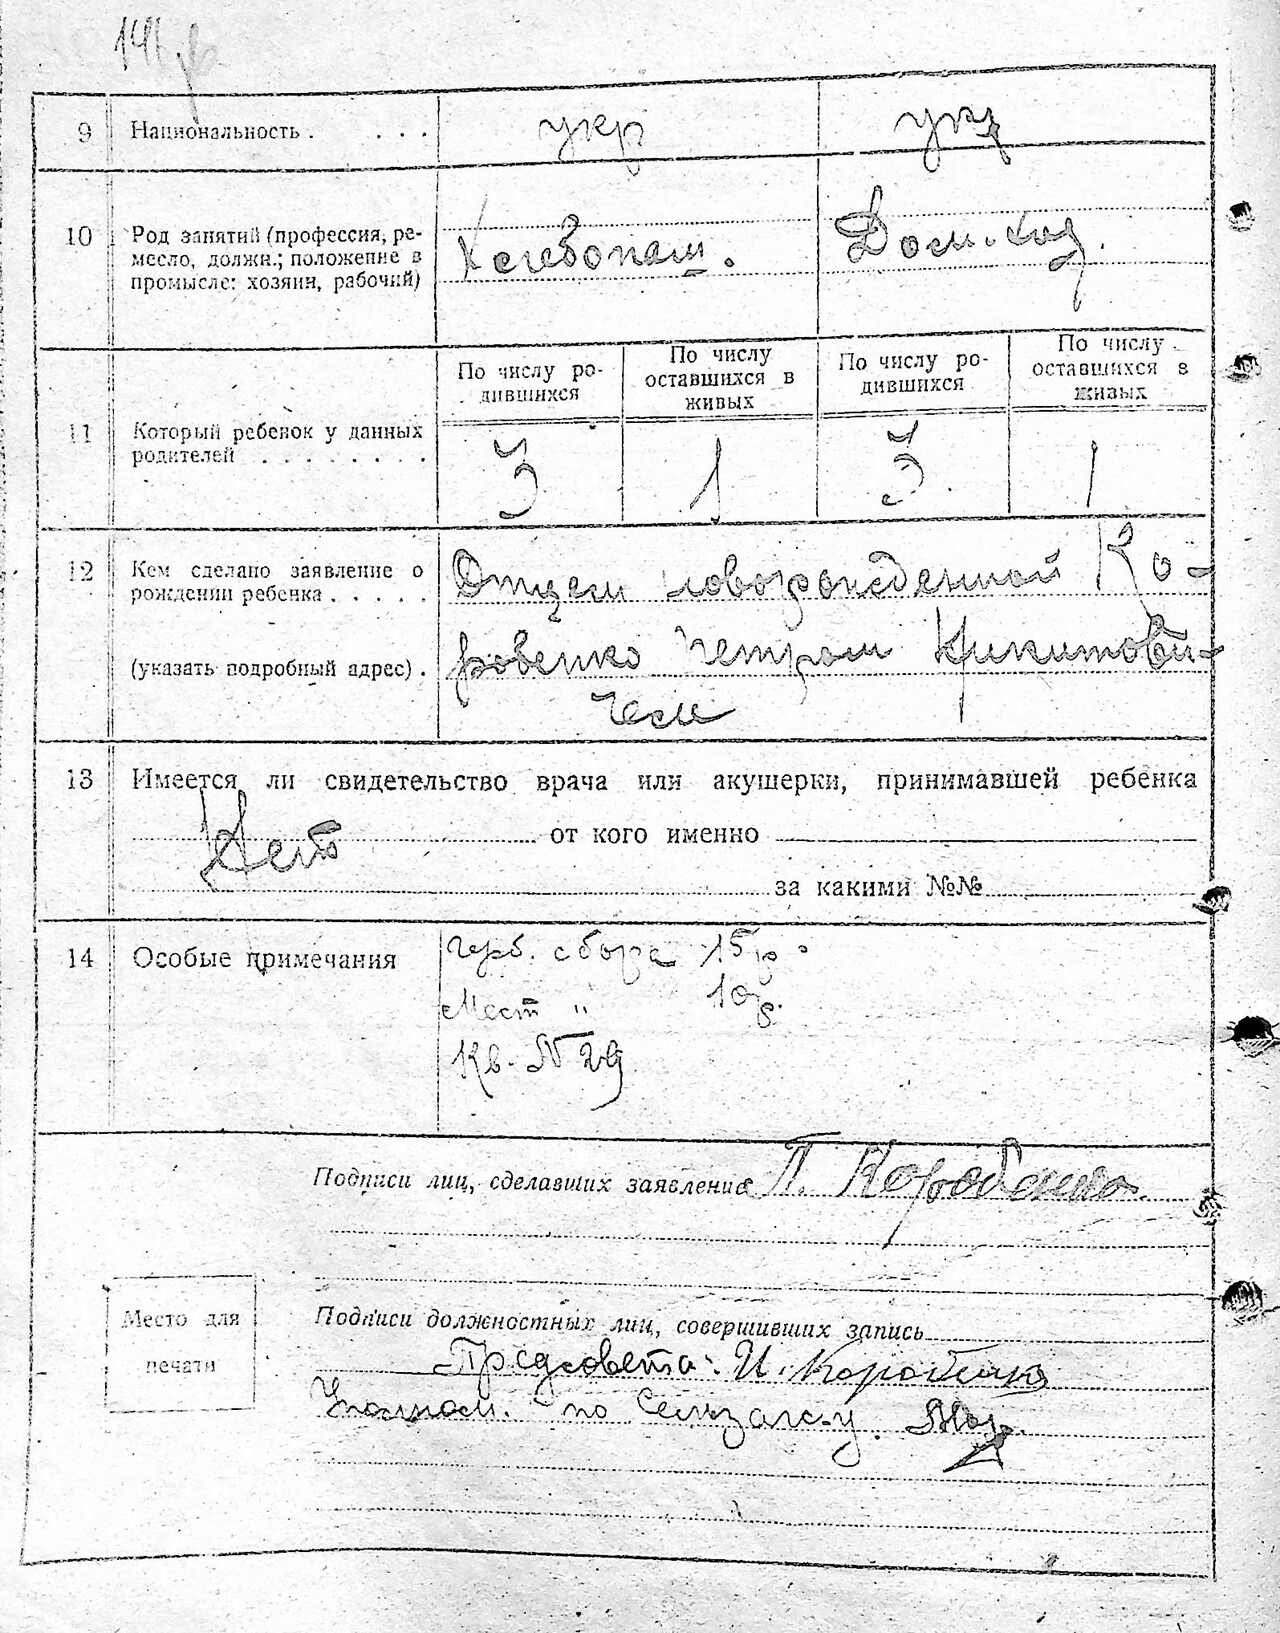 9 Национальность . . . . укр укр
10 Род занятий (профессия, ре-
месло, должн.; положение в
промысле: хозяин, рабочий)
Хлебопаш. Дом. хоз.
11 Который ребенок у данных
родителей . . . . . . .
По числу ро-
дившихся
По числу
оставшихся в
живых
По числу ро-
дившихся
По числу
оставшихся в
живых
3 1 3 1
12 Кем сделано заявление о
рождении ребенка . . . . .
(указать подробный адрес) .
Отцем новорожденной Ко-
ровенко Петром Никитови-
чем
13 Имеется ли свидетельство врача или акушерки, принимавшей ребенка
Нет от кого именно
за какими №№
14 Особые примечания
Герб. сбора 15 р.
Мест " 10 р.
Кв. № 29
Подписи лиц, сделавших заявление П. Коровенко
Место для
печати
Подписи должностных лиц, совершивших запись
Предсовета: И. Коровенко
Уполном. по